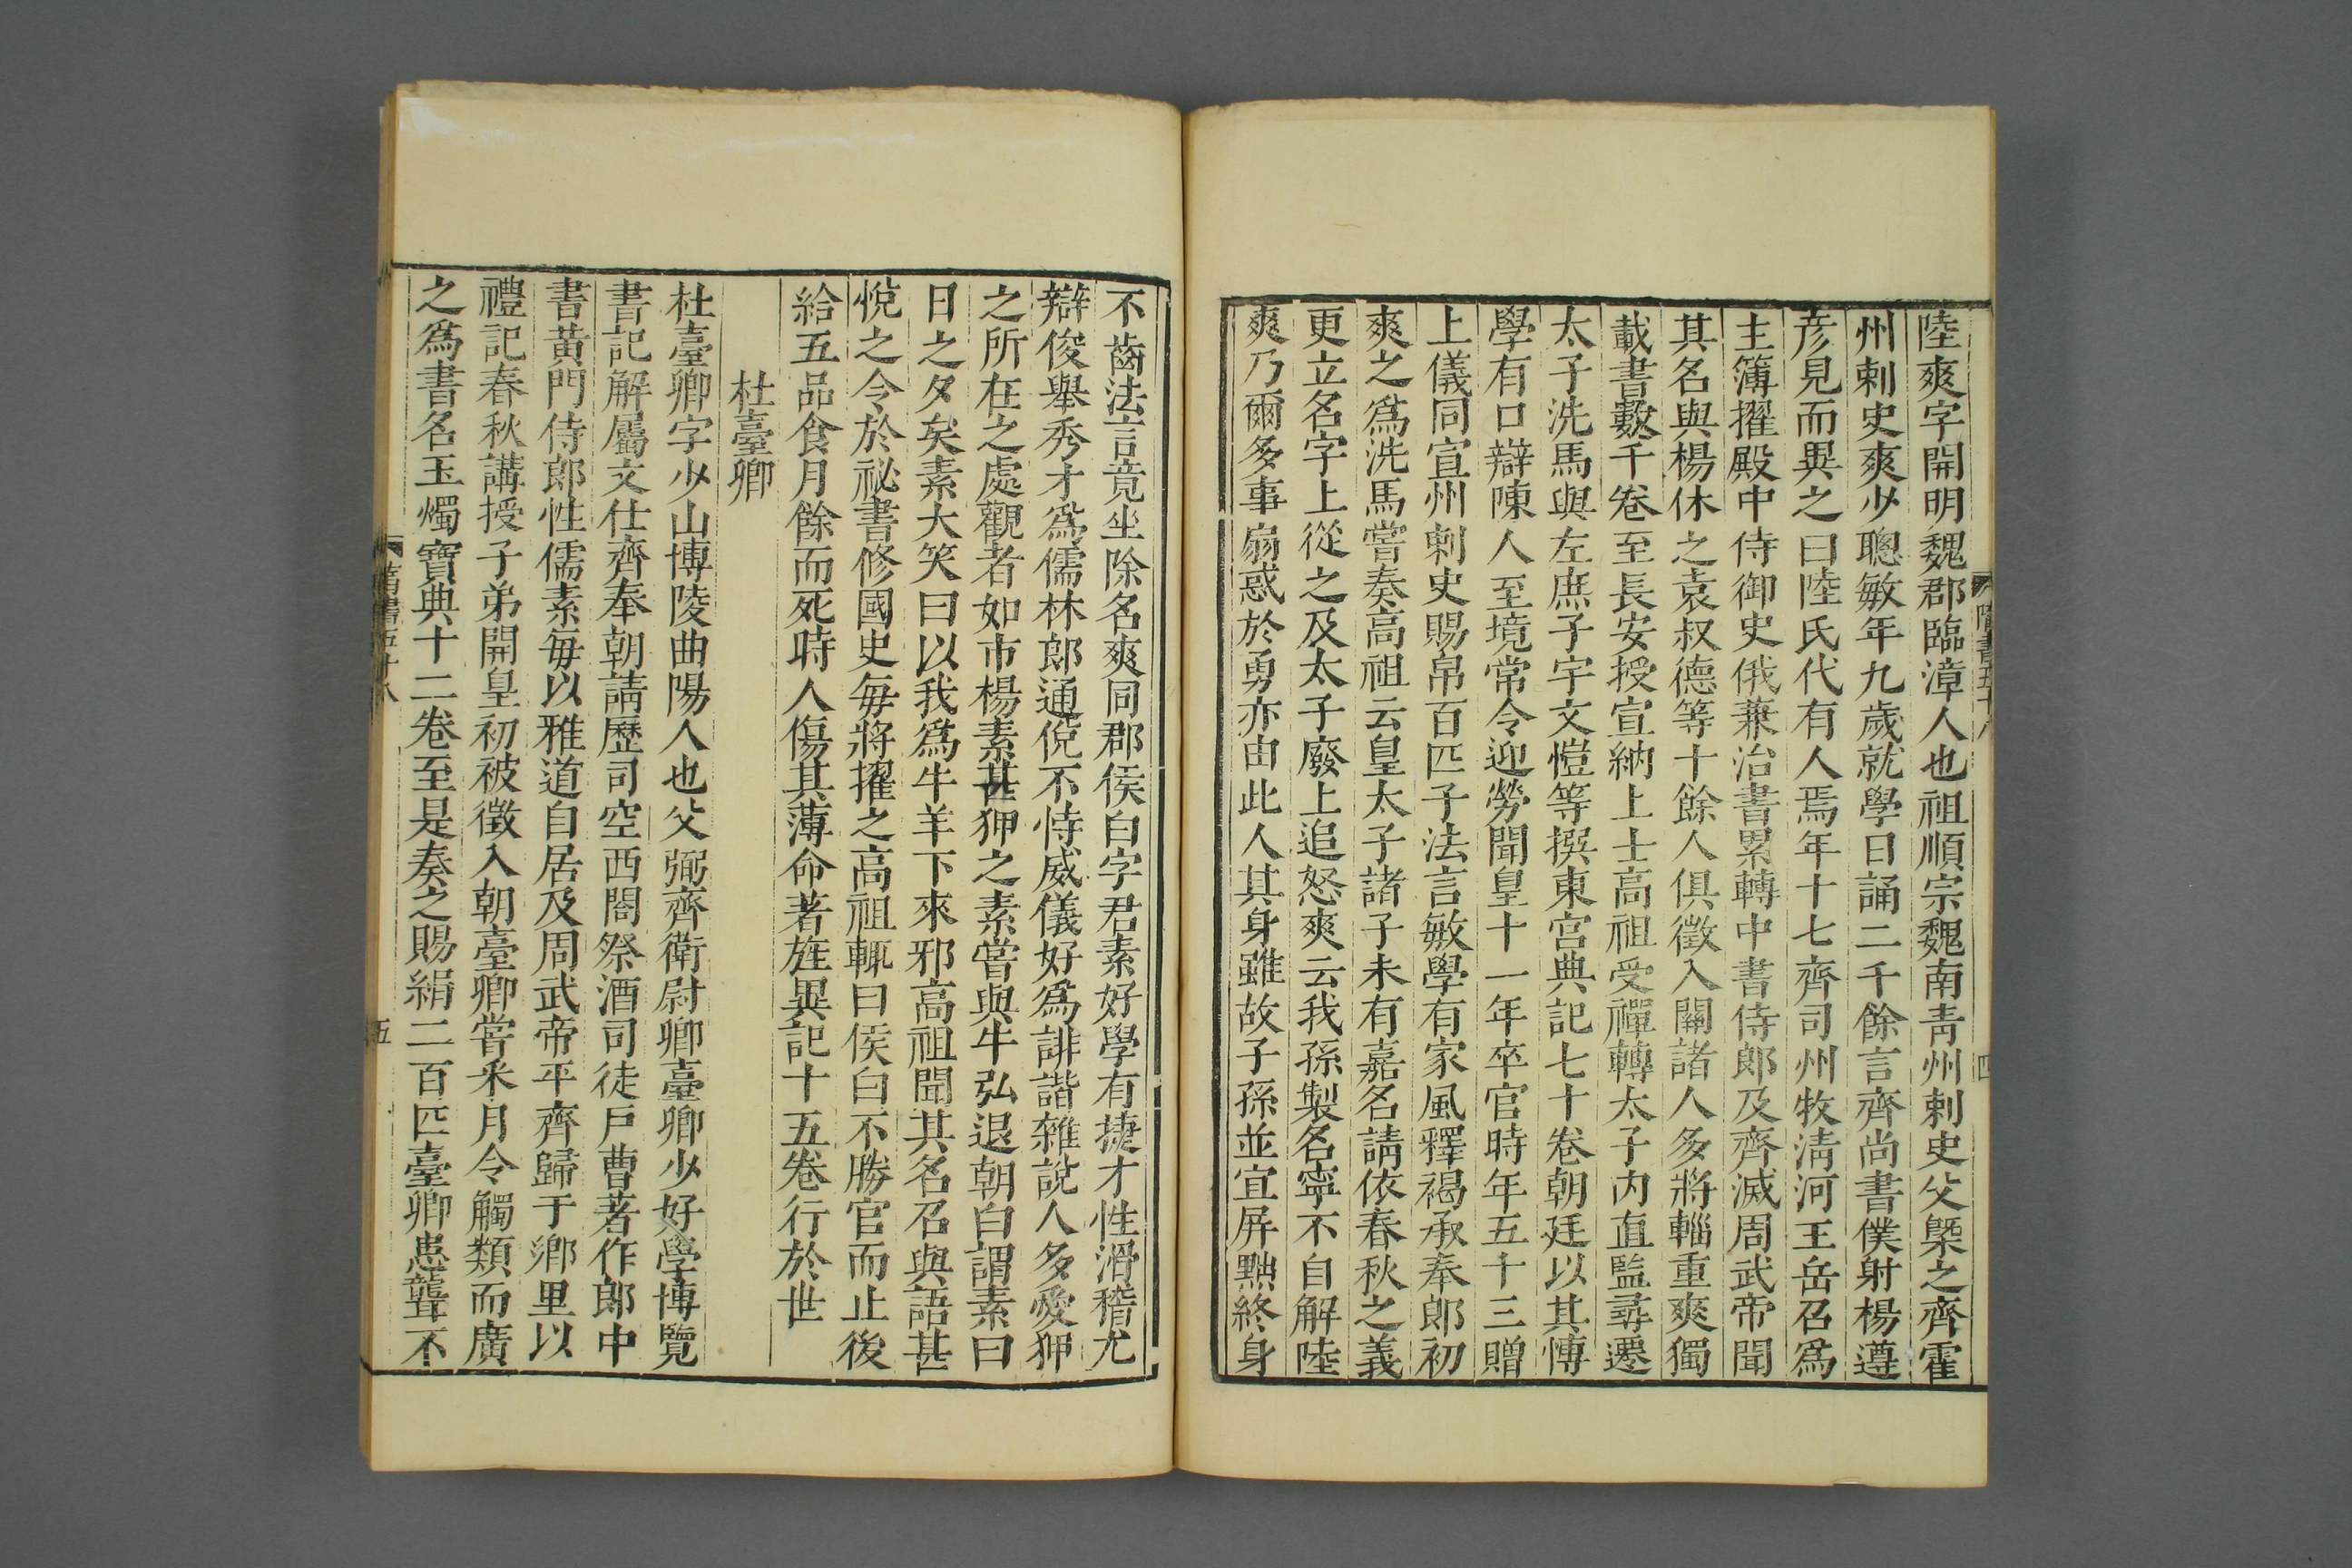 陸爽字開明魏郡臨漳人也祖順宗魏南靑州刺史父槩之齊霍
州刺史爽少聰敏年九歲就學日誦二千餘言齊尚書僕射楊遵
彦見而異之曰陸氏代有人焉年十七齊司州牧淸河王岳召爲
主簿擢殿中侍御史俄兼治書累轉中書侍郎及齊滅周武帝聞
其名與楊休之袁叔德等十餘人俱徵入關諸人多將輜重爽獨
載書數千卷至長安授宣納上士高祖受禪轉太子內直監尋遷
太子洗馬與左庶子宇文愷等撰東宮典記七十卷朝廷以其博
學有口辯陳人至境常令迎勞開皇十一年卒官時年五十三贈
上儀同宣州刺史賜帛百匹子法言敏學有家風釋褐承奉郎初
爽之爲洗馬嘗奏高祖云皇太子諸子未有嘉名請依春秋之義
更立名字上從之及太子廢上追怒爽云我孫製名寧不自解陸
爽乃爾多事扇惑於勇亦由此人其身雖故子孫並宜屛黜終身
不齒法言竟坐除名爽同郡侯白字君素好學有捷才性滑稽尤
辯俊舉秀才爲儒林郎通侻不恃威儀好爲誹諧雜說人多愛狎
之所在之處觀者如市楊素甚狎之素嘗與牛弘退朝白謂素曰
日之夕矣素大笑曰以我爲牛羊下來邪高祖聞其名召與語甚
悅之令於祕書修國史每將擢之高祖輒曰侯白不勝官而止後
給五品食月餘而死時人傷其薄命著旌異記十五卷行於世
杜臺卿
杜臺卿字少山博陵曲陽人也父弼齊衛尉卿臺卿少好學博覽
書記解屬文仕齊奉朝請歷司空西閤祭酒司徒戶曹著作郎中
書黃門侍郎性儒素每以雅道自居及周武帝平齊歸于鄕里以
禮記春秋講授子弟開皇初被徵入朝臺卿嘗采月令觸類而廣
之爲書名玉燭寶典十二卷至是奏之賜絹二百匹臺卿患聾不
隋書五十八
四
隋書五十八
五